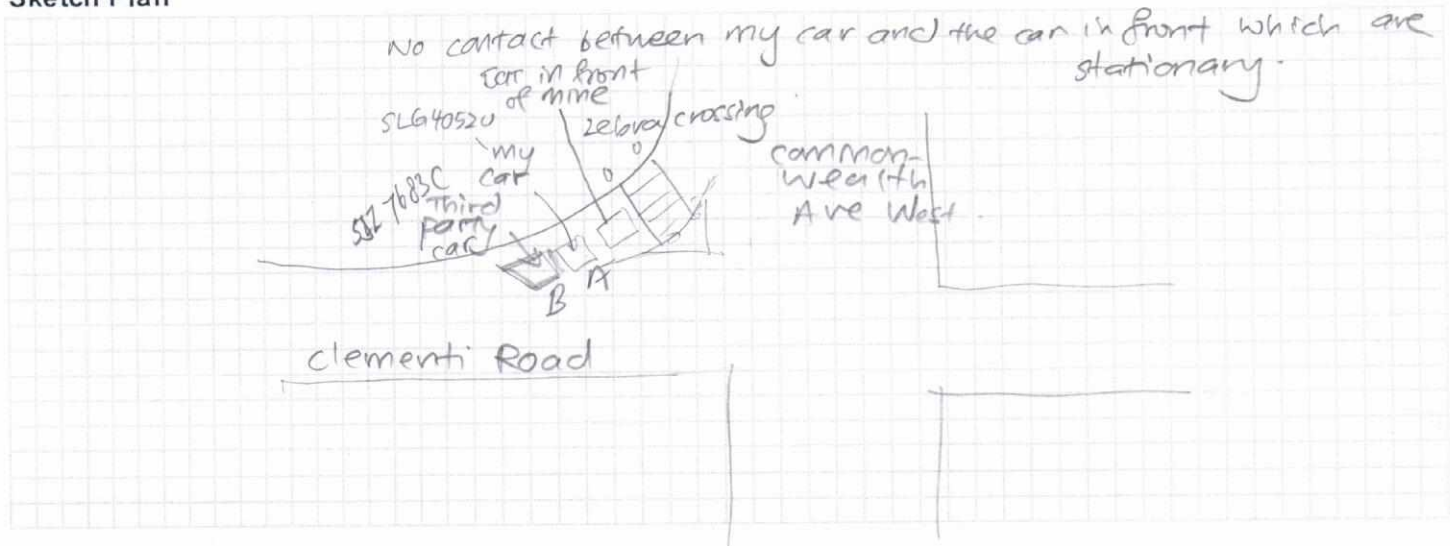 Sketch Plan
No contact between my car and the car in front which are
stationary.
car in front
of mine
SLG4052U
zebra crossing
my
car
Third
party
car
common-
wealth
Ave West.
A
B
Clementi Road